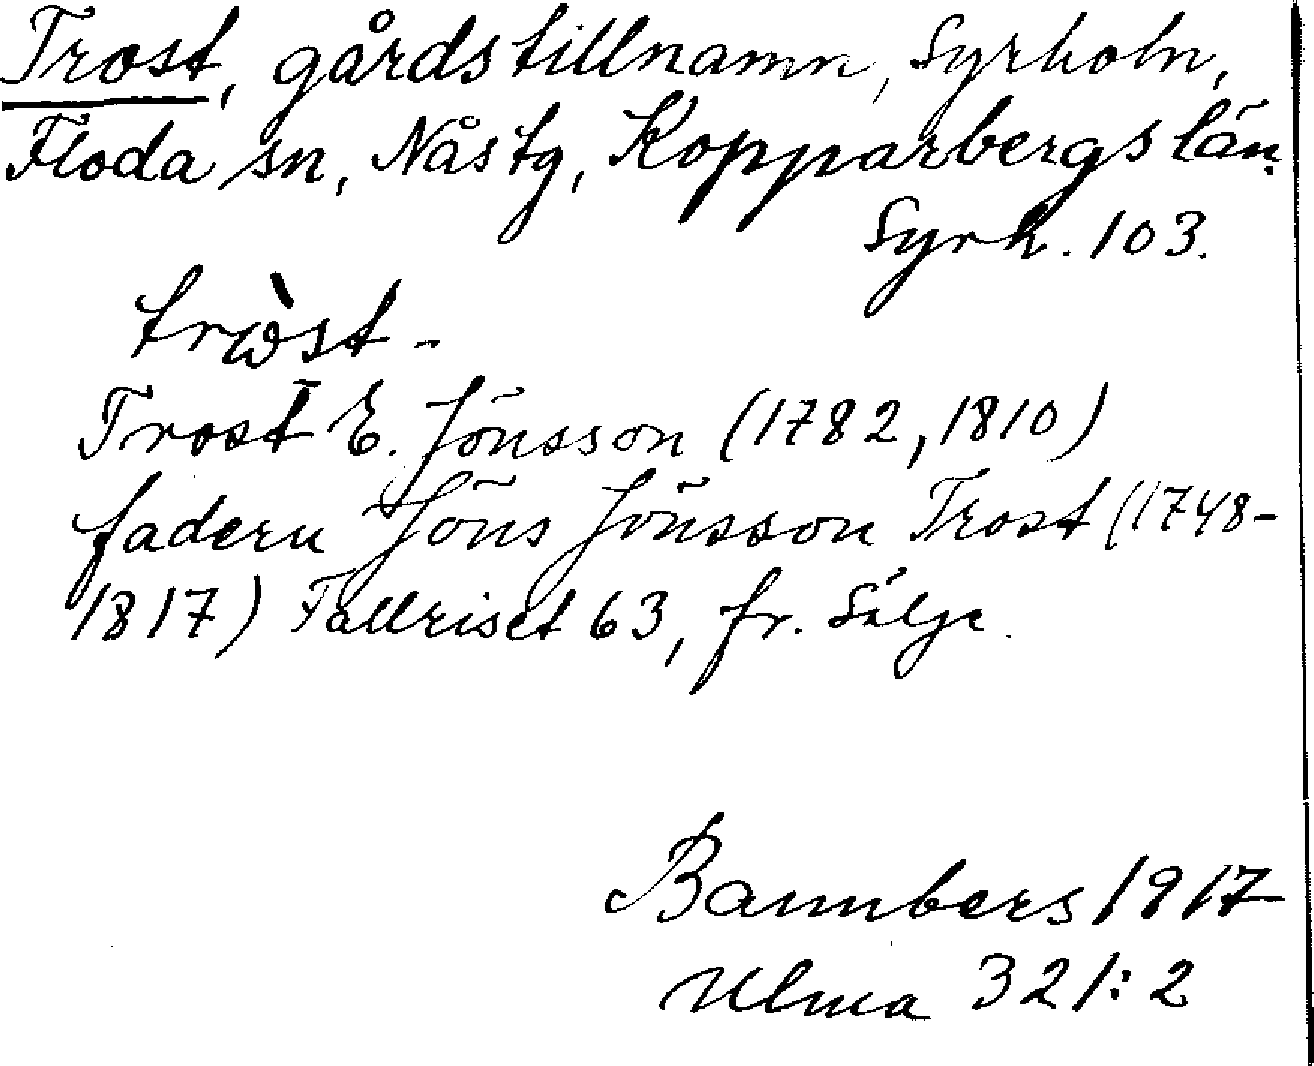 Trost, gårdstillnamn, Syrholn,
Floda sn, Nås tg, Kopparbergs län.
Syrh. 103.
tròst-
Trost E. Jönsson (1782, 1810)
fadern Jöns Jönsson Trost (1748-
1817) Tallriset 63, fr. Sälje.
Bannbers 1917
Ulma 321:2